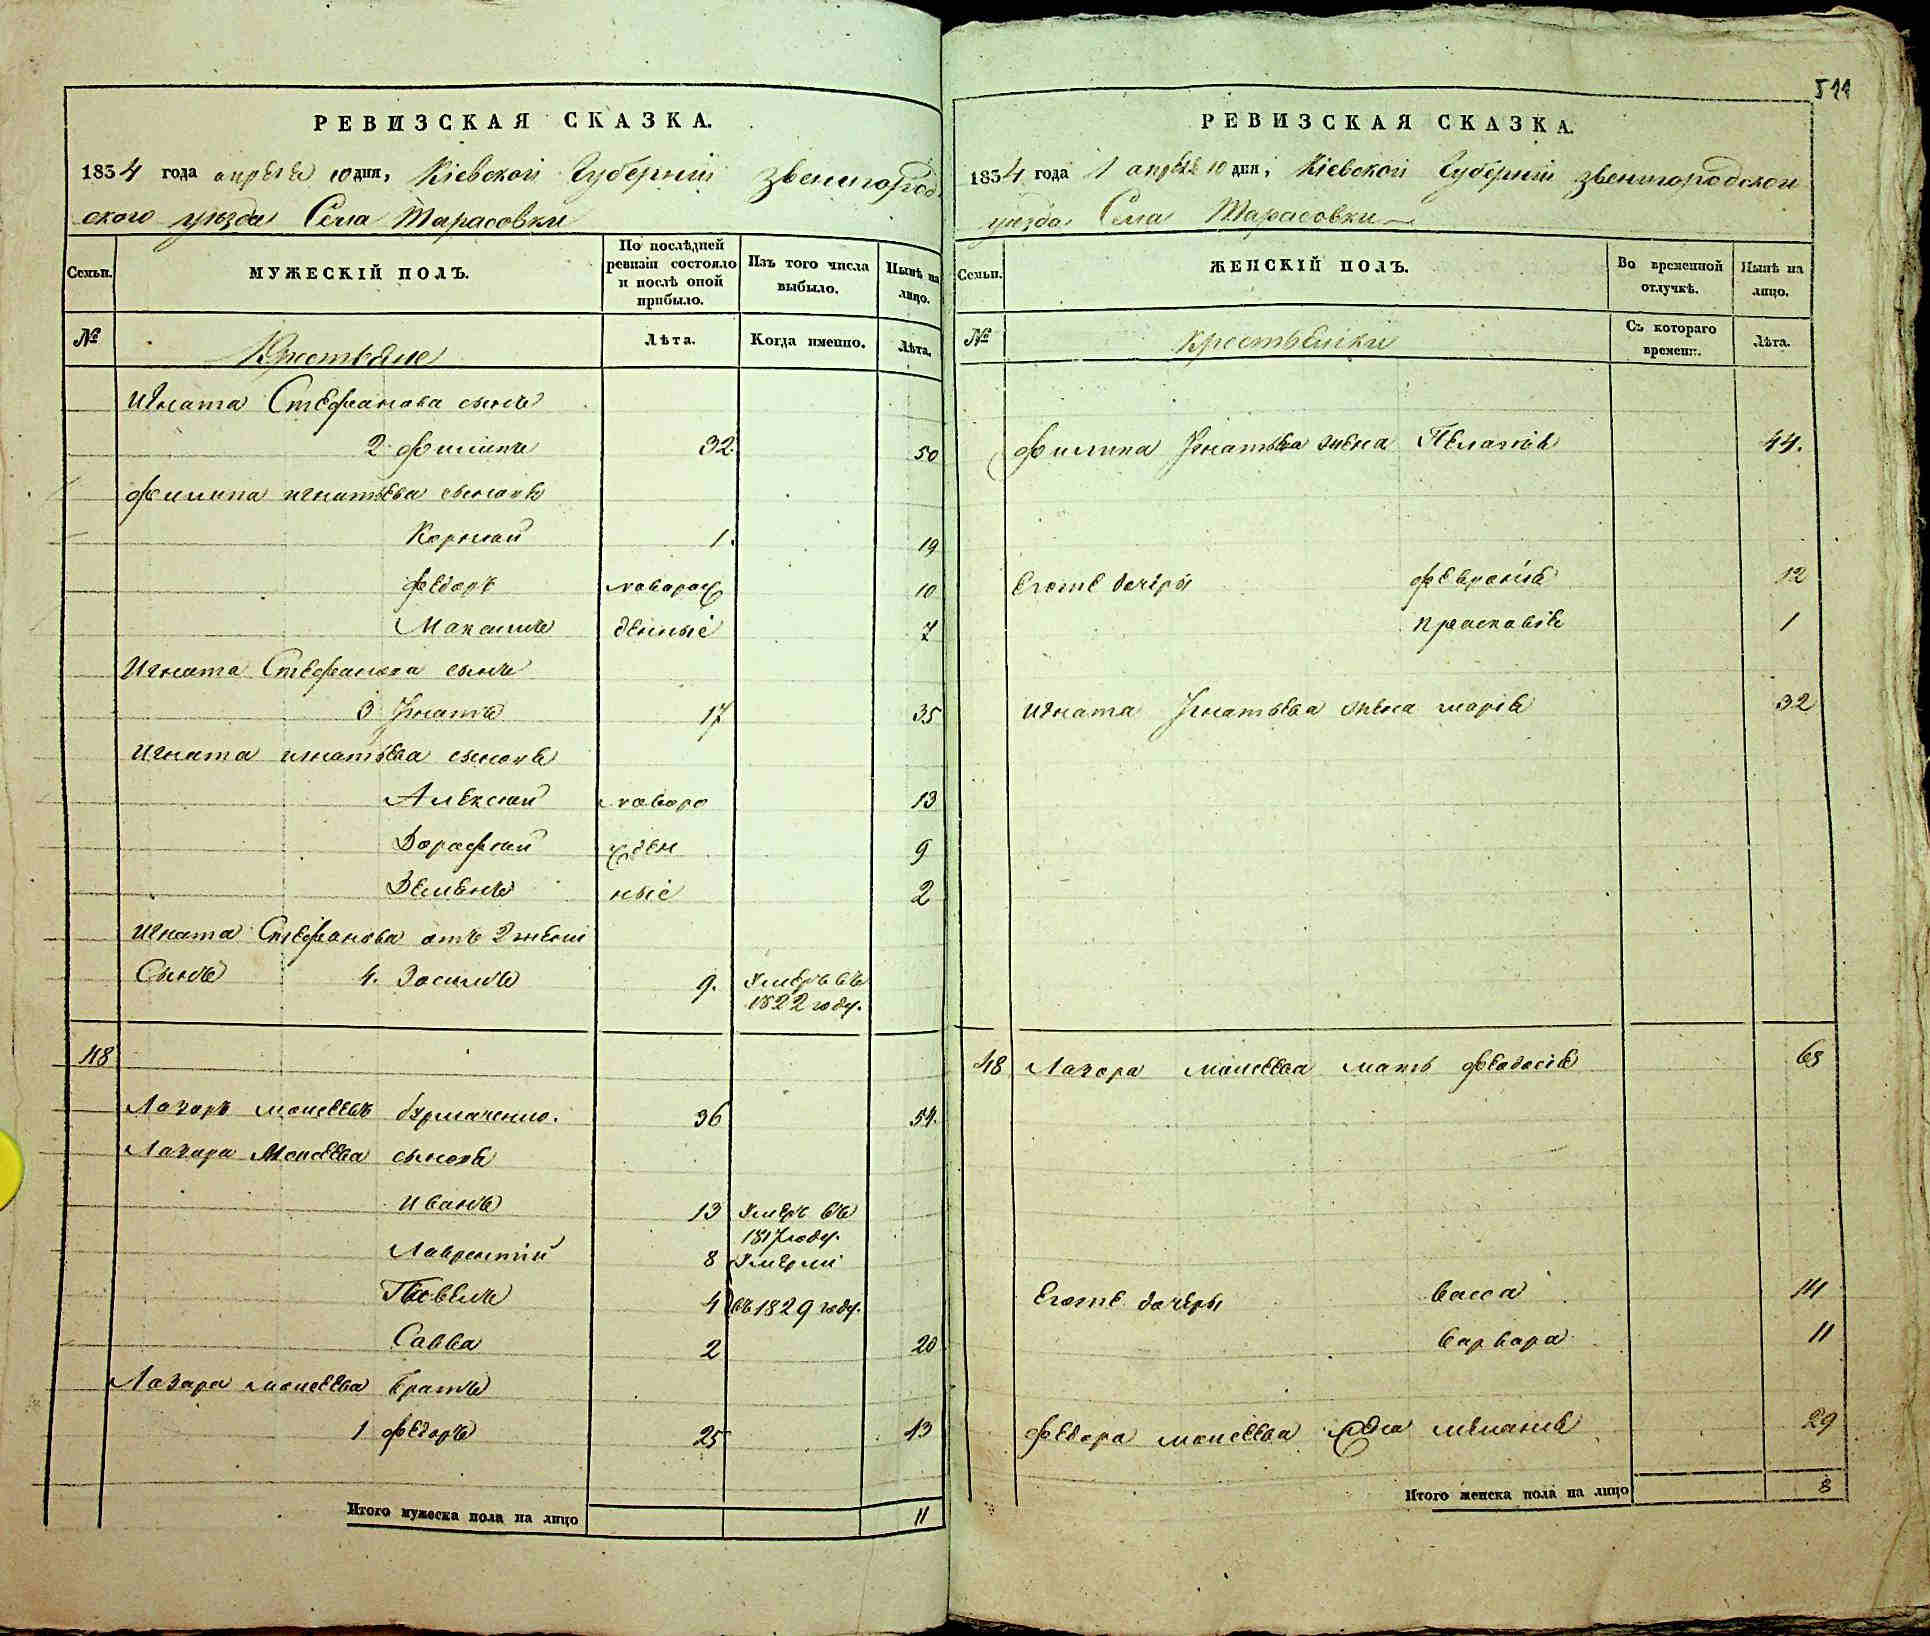 511
РЕВИЗСКАЯ СКАЗКА.
1834 года апреля 10 дня, Кіевской Губерніи Звенигород
ского уезда Села Тарасовки
Семьи.
МУЖЕСКІЙ ПОЛЪ.
По послѣдней ревизіи состояло и послѣ оной прибыло.
Изъ того числа выбыло.
Нынѣ на лицо.
№
Крестьяне
Лѣта.
Когда именно.
Лѣта.
Игната Стефанова сынъ
2 Филипъ 32 50
Филипа игнатьева сыновя
Корнѣй 1. 19
Федоръ новорож 10
Максимъ денные 7
Игната Стефанова сынъ
3 Игнатъ 17 35
Игната игнатьева сыновя
Алексѣй новоро 13
Дорофѣй жден 9
ные 2
Игната Стефанова отъ 2 жены
Сынъ 4. 9. Умеръ въ
1822 году.
48
Лазоръ моисеевъ бурмаченко. 36 54.
Лазара Моисеева сыновя
Иванъ 13 Умеръ въ
1817 году.
Лаврентій 8 Умерли
Павелъ 4 въ 1829 году.
Савва 2 20
Лазара моисеева братъ
1 Федоръ 25 43
Итого мужеска пола на лицо 11
РЕВИЗСКАЯ СКАЗКА.
1834 года апреля 10 дня, Кіевской Губерніи Звенигородской
уезда Села Тарасовки
Семьи.
ЖЕНСКІЙ ПОЛЪ.
Во временной отлучкѣ.
Нынѣ на лицо.
№
Крестьянки
Съ котораго времени.
Лѣта.
Филипа Игнатьева жена Пелагия 44.
Егоже дочери Феврония 12
Прасковія 1
Игната Игнатьева жена марія 32
48 Лазора моисеева мать Феодосія 65
Егоже дочеры васса 14
варвара 11
Федора моисеева жена 29
Итого женска пола на лицо 8